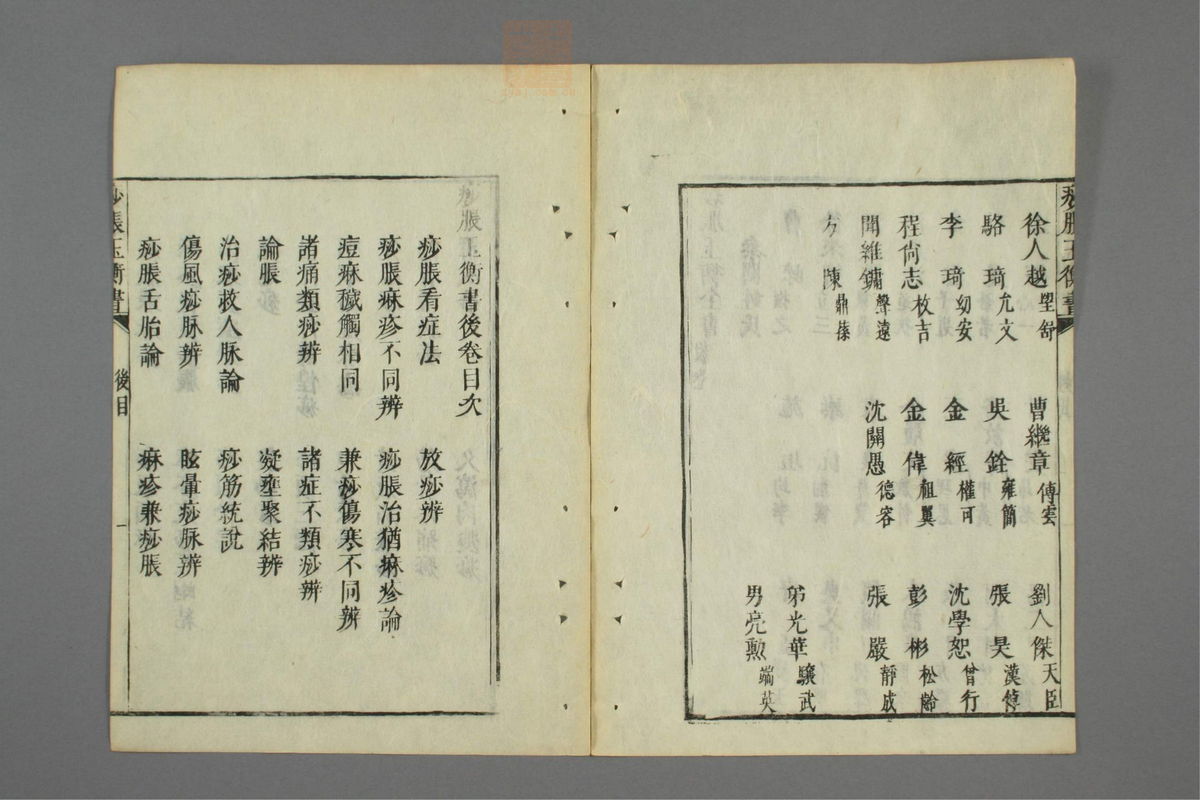 痧脹玉衡書
徐人越 聖舒 曹繼章 傅雲 劉人傑 天臣
駱琦 允文 吳銓 雍簡 張昊 漢倬
李琦 幼安 金經 權可 沈學恕 曾行
程尚志 枚吉 金偉 祖翼 彭彬 松齡
聞維鏞 聲遠 沈開愚 德容 張嚴 靜成
方陳 鼎蓧 弟光華 驤武
男亮勲 端英
痧脹玉衡書後卷目次
痧脹看症法 放痧辨
痧脹麻疹不同辨 痧脹治猶麻疹論
痘麻穢觸相同 兼痧傷寒不同辨
諸痛類痧辨 諸症不類痧辨
論脹 凝壅聚結辨
治痧救人脉論 痧筋統說
傷風痧脉辨 眩暈痧脉辨
痧脹舌胎論 麻疹兼痧脹
痧脹玉衡書 後目 一